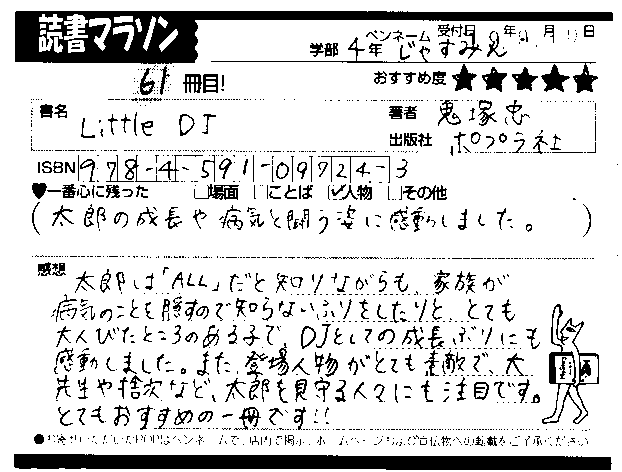 読書マラソン
ペンネーム 受付日 年 月 日
学部 4年 じゃすみん
61冊目!
おすすめ度 ★★★★★
書名 Little DJ
著者 鬼塚忠
出版社 ポプラ社
ISBN 978-4-591-09724-3
♥一番心に残った □場面 □ことば ☑人物 □その他
(太郎の成長や病気と闘う姿に感動しました。)
感想
太郎は「ALL」だと知りながらも、家族が
病気のことを隠すので知らないふりをしたりと、とても
大人びたところのある子で、DJとしての成長ぶりにも
感動しました。また、登場人物がとても素敵で、大
先生や捨次など、太郎を見守る人々にも注目です。
とてもおすすめの一冊です!!
●お寄せいただいたPOPはペンネームで、店内で掲示、ホームページおよび宣伝物への転載をご了承ください